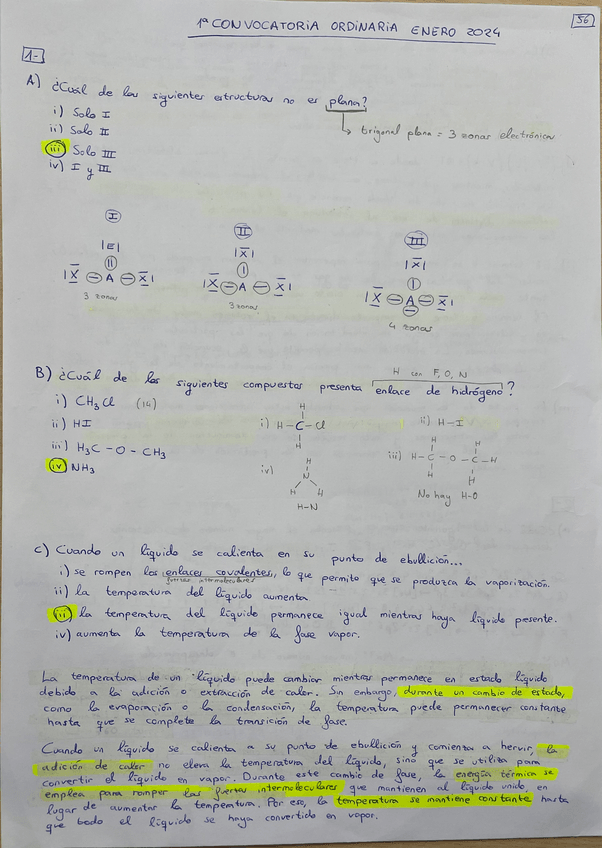 1ª CONVOCATORIA ORDINARIA ENERO 2024
56
1-
A) ¿Cuál de las siguientes estructuras no es plana?
i) Solo I
ii) Solo II
trigonal plana = 3 zonas electrónicas
iii) Solo III
iv) I y III
I
II
III
|E|
|X|
|X|
|X - A - X|
|X - A - X|
|X - A - X|
3 zonas
3 zonas
4 zonas
H con F, O, N
B) ¿Cuál de los siguientes compuestos presenta enlace de hidrógeno?
i) CH3Cl (14)
ii) HI
iii) H3C - O - CH3
iv) NH3
H
i) H - C - Cl
H
ii) H - I
H H
iii) H - C - O - C - H
H H
No hay H-O
iv)
H
N
H H
H-N
C) Cuando un líquido se calienta en su punto de ebullición...
i) se rompen los enlaces covalentes, lo que permite que se produzca la vaporización.
fuerzas intermoleculares
ii) la temperatura del líquido aumenta
iii) la temperatura del líquido permanece igual mientras haya líquido presente.
iv) aumenta la temperatura de la fase vapor.
La temperatura de un líquido puede cambiar mientras permanece en estado líquido
debido a la adición o extracción de calor. Sin embargo, durante un cambio de estado,
como la evaporación o la condensación, la temperatura puede permanecer constante
hasta que se complete la transición de fase.
Cuando un líquido se calienta a su punto de ebullición y comienza a hervir, la
adición de calor no eleva la temperatura del líquido, sino que se utiliza para
convertir el líquido en vapor. Durante este cambio de fase, la energía térmica se
emplea para romper las fuerzas intermoleculares que mantienen al líquido unido, en
lugar de aumentar la temperatura. Por eso, la temperatura se mantiene constante hasta
que todo el líquido se haya convertido en vapor.